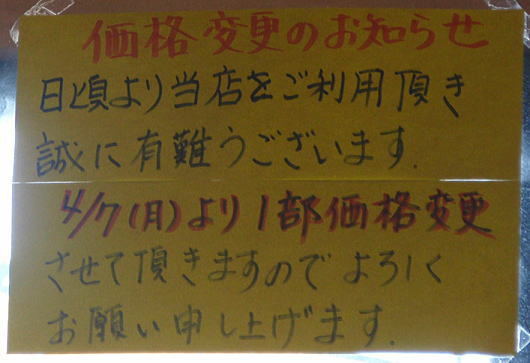 価格変更のお知らせ
日頃より当店をご利用頂き
誠に有難うございます.
4/7(月)より1部価格変更
させて頂きますのでよろしく
お願い申し上げます.